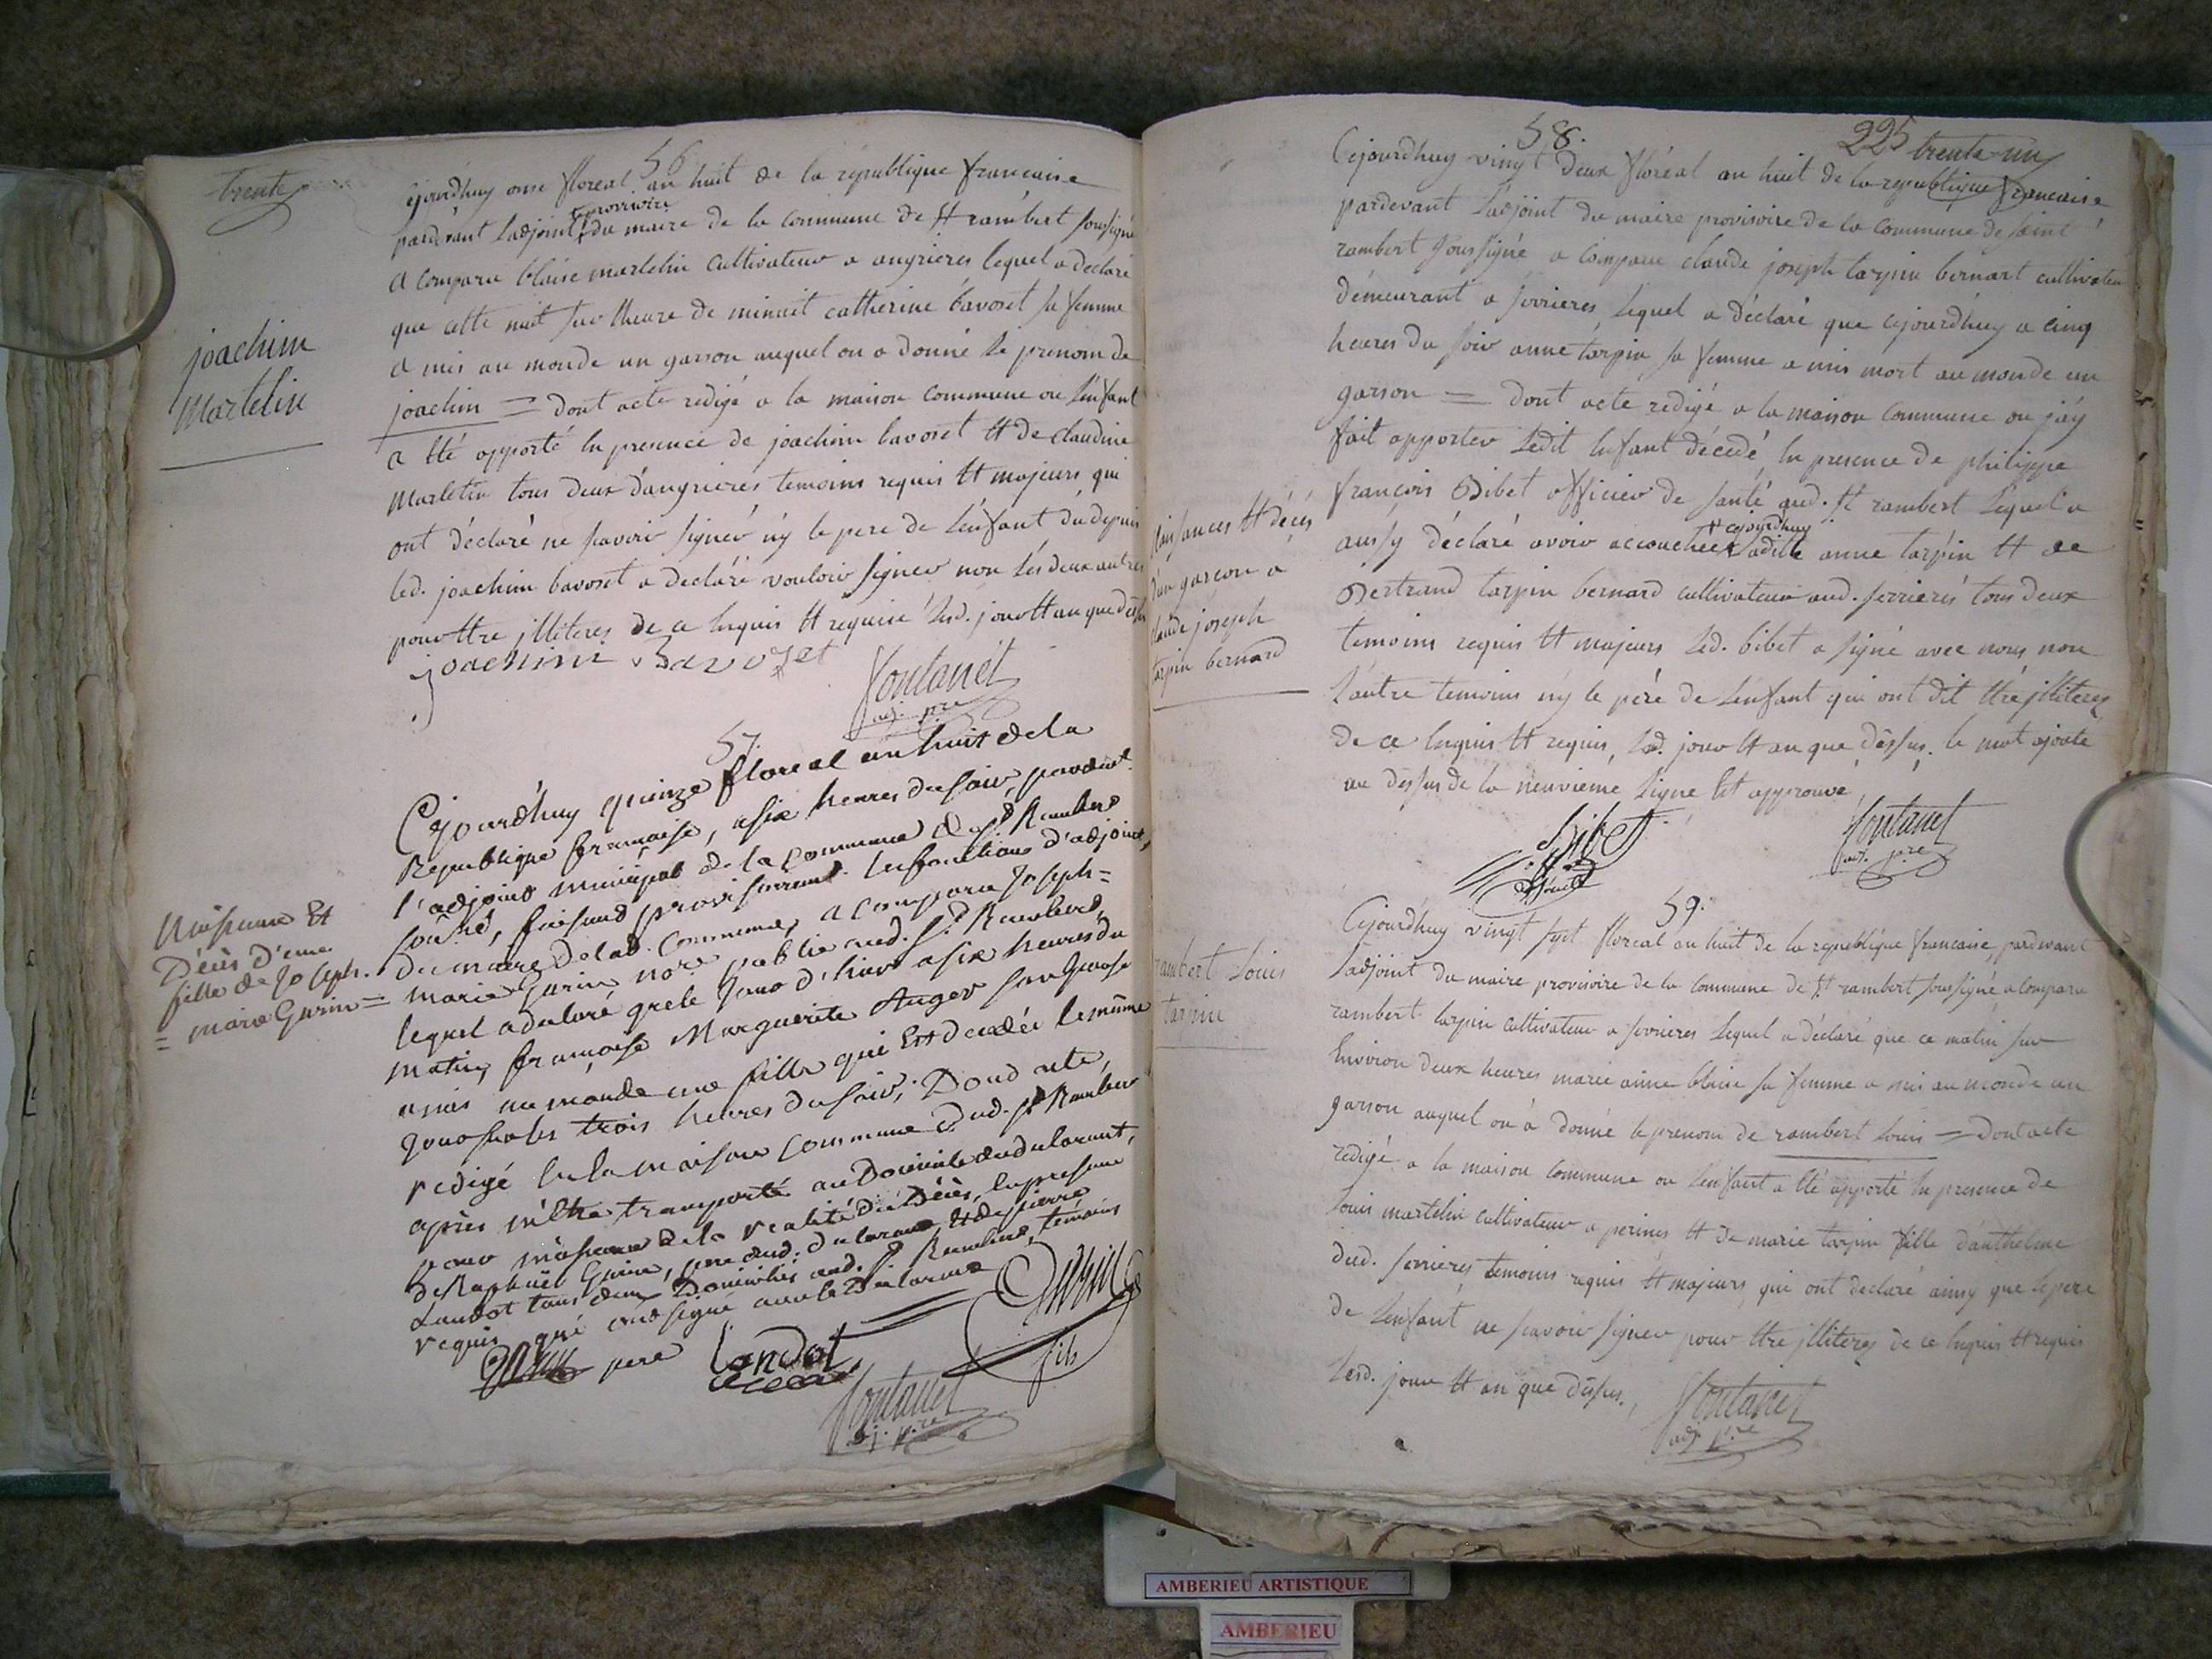 trente
56
Cejourdhuy onse floreal an huit de la république francaise
provisoire
pardevant Ladjoint du maire de la commune de St rambert soussigné
a comparu blaise martelin cultivateur a angrieres lequel a declaré
que cette nuit sur lheure de minuit catherine bavoset sa femme
a mis au monde un garson auquel on a donné le prenom de
joachin = dont acte redigé a la maison commune ou Lenfant
a Eté apporté En presence de joachim bavoset Et de claudine
Martelin tous deux dangrieres temoins requis Et majeurs qui
ont déclaré ne scavoir signer n'y le pere de Lenfant du depuis
led. joachim bavoset a declaré vouloir signer non Les deux autres
pour Etre jlliteres de ce Enquis Et requis Lesd. jour Et an que dessus
joachim Bavozet
fontanet
adj. pre
joachim
Martelin
57.
Cejourdhuy quinze floreal an huit de la
Republique française, a six heures du soir, pardevant
l'adjoint municipal de la Commune de St Rambert
sousné, faisant provisoirement les fonctions d'adjoint,
du maire de lad. Commune, a comparu Joseph=
marie Gurin, nore public aud. St Rambert,
lequel a declaré que le jour d'hier a six heures du
matin, françoise Marguerite Auger son Epouse
a mis au monde une fille qui Est decedée le même
jour sur les trois heures du soir; Dont acte,
rédigé En la maison commune dud. St Rambert
après m'être transporté au Domicile dud. declarant,
pour m'assurer de la réalité du Décès, En presence
de Raphaël Gurin, pere dud. declarant, Et de pierre
Landot tous deux Domiciliés aud. St Rambert, temoins
requis qui ont signé avec le Declarant
Gurin pere
Landot
Gurin
fils
fontanet
adj. pre
Naissance Et
Décès d'une
fille de Joseph.
= marie Gurin =
58.
225
trente un
Cejourdhuy vingt deux floréal an huit de la republique francaise
pardevant Ladjoint du maire provisoire de la commune de saint
rambert soussigné a comparu claude joseph tarpin bernart cultivateur
démeurant a serrieres, Lequel a déclaré que cejourdhuy a cinq
heures du soir anne tarpin sa femme a mis mort au monde un
garson = dont acte redigé a la maison commune ou j'áy
fait apporter Ledit Enfant décedé, En presence de philippe
françois Bibet officier de santé aud. St rambert Lequel a
cejourdhuy
aussy déclaré avoir accouchée Ladite anne tarpin Et de
Bertrand tarpin bernard cultivateur aud. serrieres tous deux
temoins requis Et majeurs Led. bibet a signé avec nous non
Lautre temoins n'y le père de Lenfant qui ont dit Etre jlliteres
de ce Enquis Et requis, Led. jour Et an que dessus. le mot ajouté
au dessus de la neuvieme Ligne Est approuvé
Bibet
off. de santé
fontanet
adj. pre
Naissances Et décès
d'un garcon a
claude joseph
tarpin bernard
59.
Cejourdhuy vingt sept floreal an huit de la republique francaise, pardevant
Ladjoint du maire provisoire de la commune de St rambert soussigné a comparu
rambert tarpin cultivateur a serrieres Lequel a déclaré que ce matin sur
Environ deux heures marie anne blaise sa femme a mis au monde un
garson auquel on à donné le prenom de rambert Louis = Dont acte
redigé a la maison commune ou Lenfant a Eté apporté En presence de
Louis martelin cultivateur a perines Et de marie tarpin fille danthelme
dud. serrieres temoins requis Et majeurs qui ont declaré ainsy que le pere
de Lenfant ne scavoir signer pour Etre jlliteres de ce Enquis Et requis
Lesd. jour Et an que dessus.
fontanet
adj. pre
rambert Louis
tarpin
AMBERIEU ARTISTIQUE
AMBERIEU